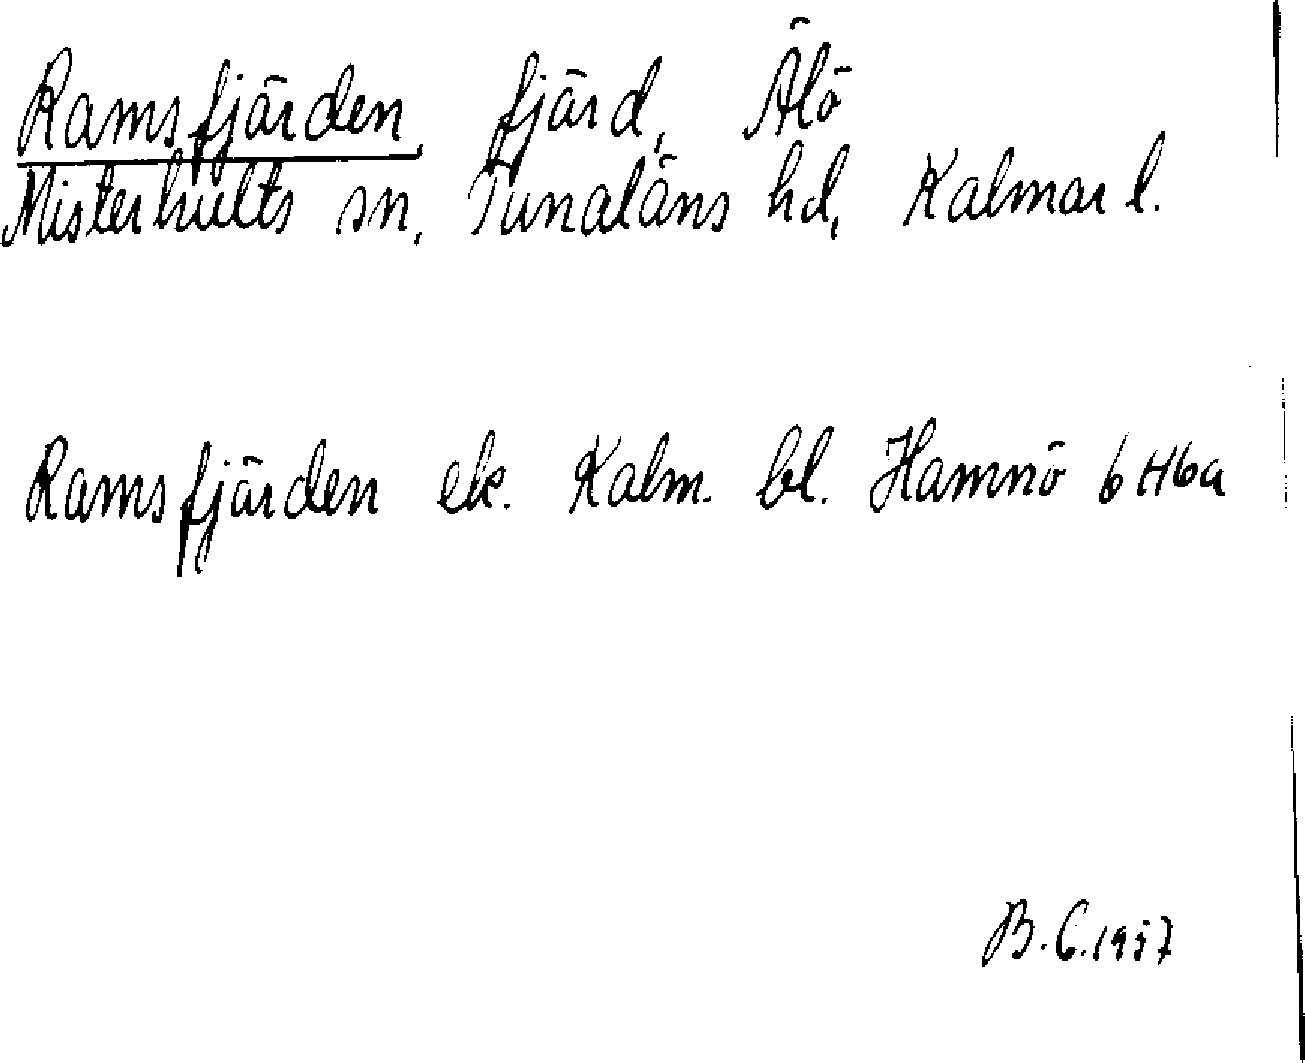 Ramsfjärden, fjärd, Älö
Misterhults sn, Tunaläns hd, Kalmar l.
Ramsfjärden ek. Kalm. bl. Hamnö 6H6a
B.C.1957